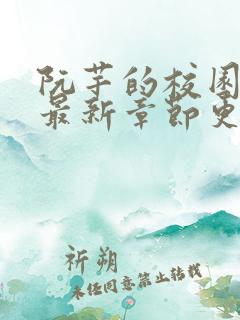 阮芋的校园
最新章节更
祈朔
未经同意禁止转载